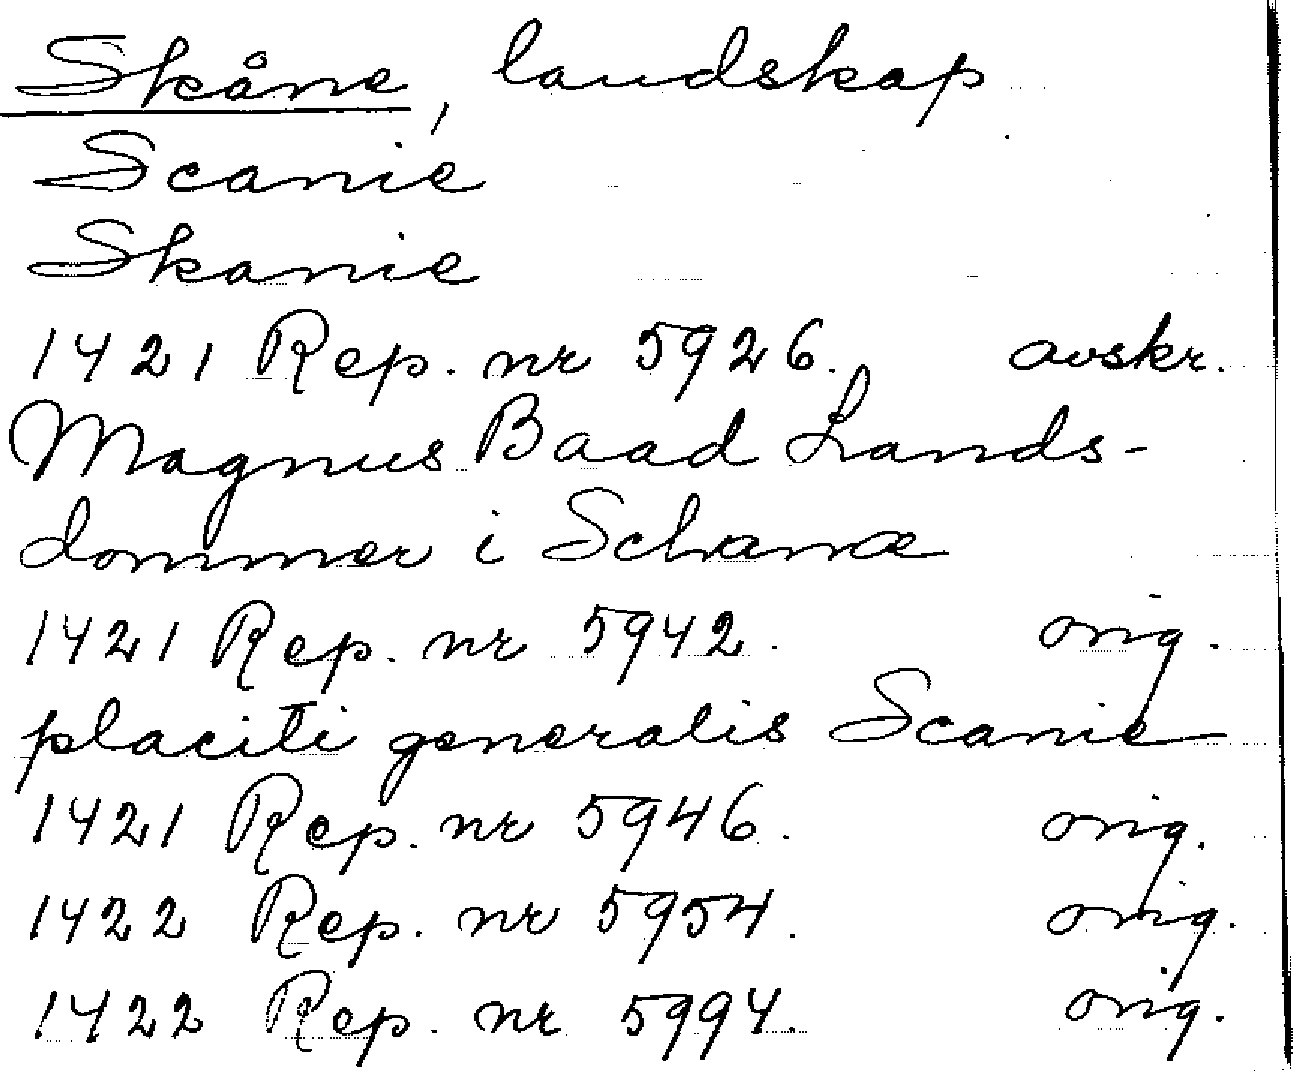 Skåne, landskap
Scanie
Skanie
1421 Rep. nr 5926. avskr.
Magnus Baad Lands-
dommer i Schanæ
1421 Rep. nr 5942. orig.
placiti generalis Scanie
1421 Rep. nr 5946. orig.
1422 Rep. nr 5954. orig.
1422 Rep. nr 5994. orig.